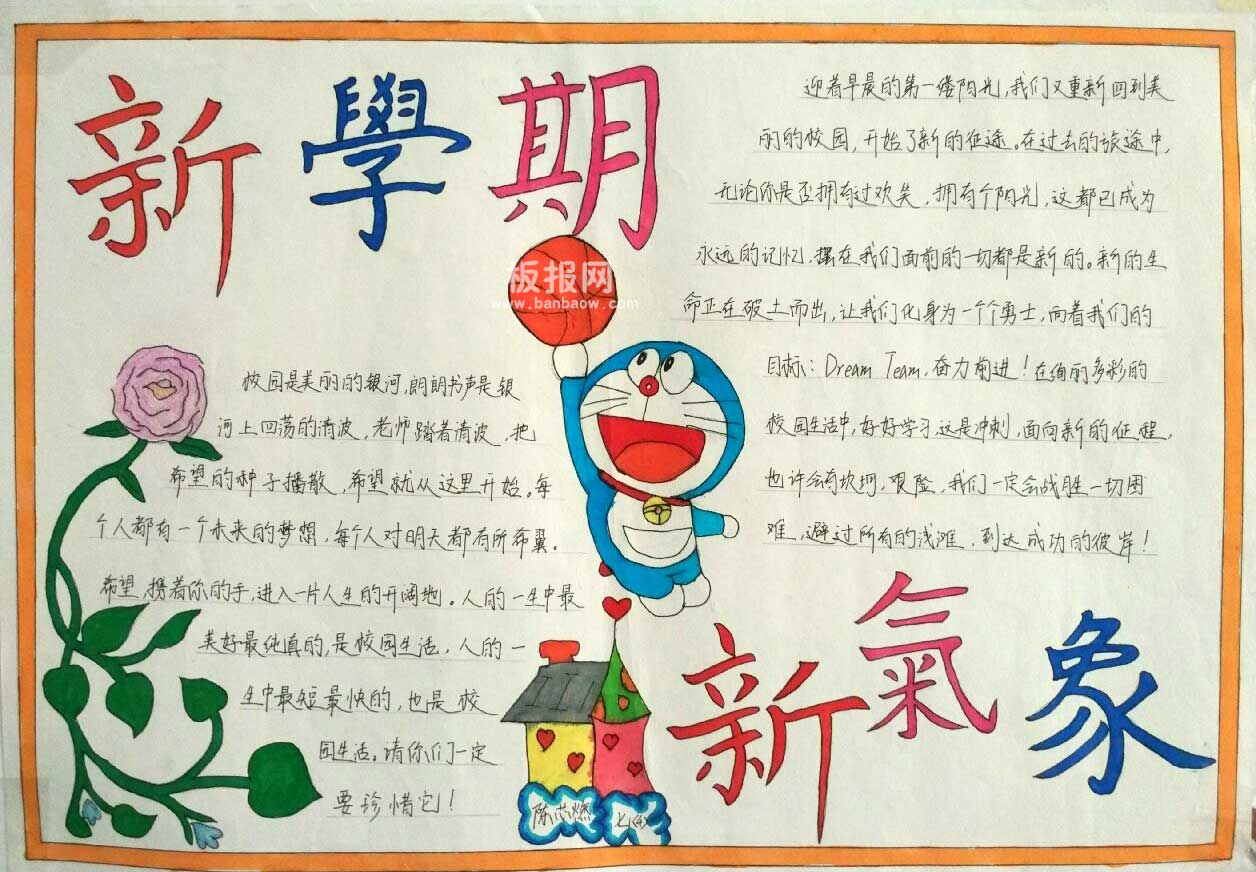 新學期
板报网
www.banbaow.com
迎着早晨的第一缕阳光,我们又重新回到美
丽的校园,开始了新的征途。在过去的旅途中,
无论你是否拥有过欢笑,拥有个阳光,这都已成为
永远的记忆,摆在我们面前的一切都是新的。新的生
命正在破土而出,让我们化身为一个个勇士,向着我们的
目标:Dream Team,奋力前进!在绚丽多彩的
校园生活中,好好学习,这是冲刺,面向新的征程,
也许会有坎坷,艰险,我们一定会战胜一切困
难,避过所有的浅滩,到达成功的彼岸!
校园是美丽的银河,朗朗书声是银
河上回荡的清波,老师踏着清波,把
希望的种子播散,希望就从这里开始。每
个人都有一个未来的梦想,每个人对明天都有所希翼。
希望,携着你的手,进入一片人生的开阔地。人的一生中最
美好最纯真的,是校园生活,人的一
生中最短最快的,也是校
园生活。请你们一定
要珍惜它!
新氣象
陈芯燃
七(4)